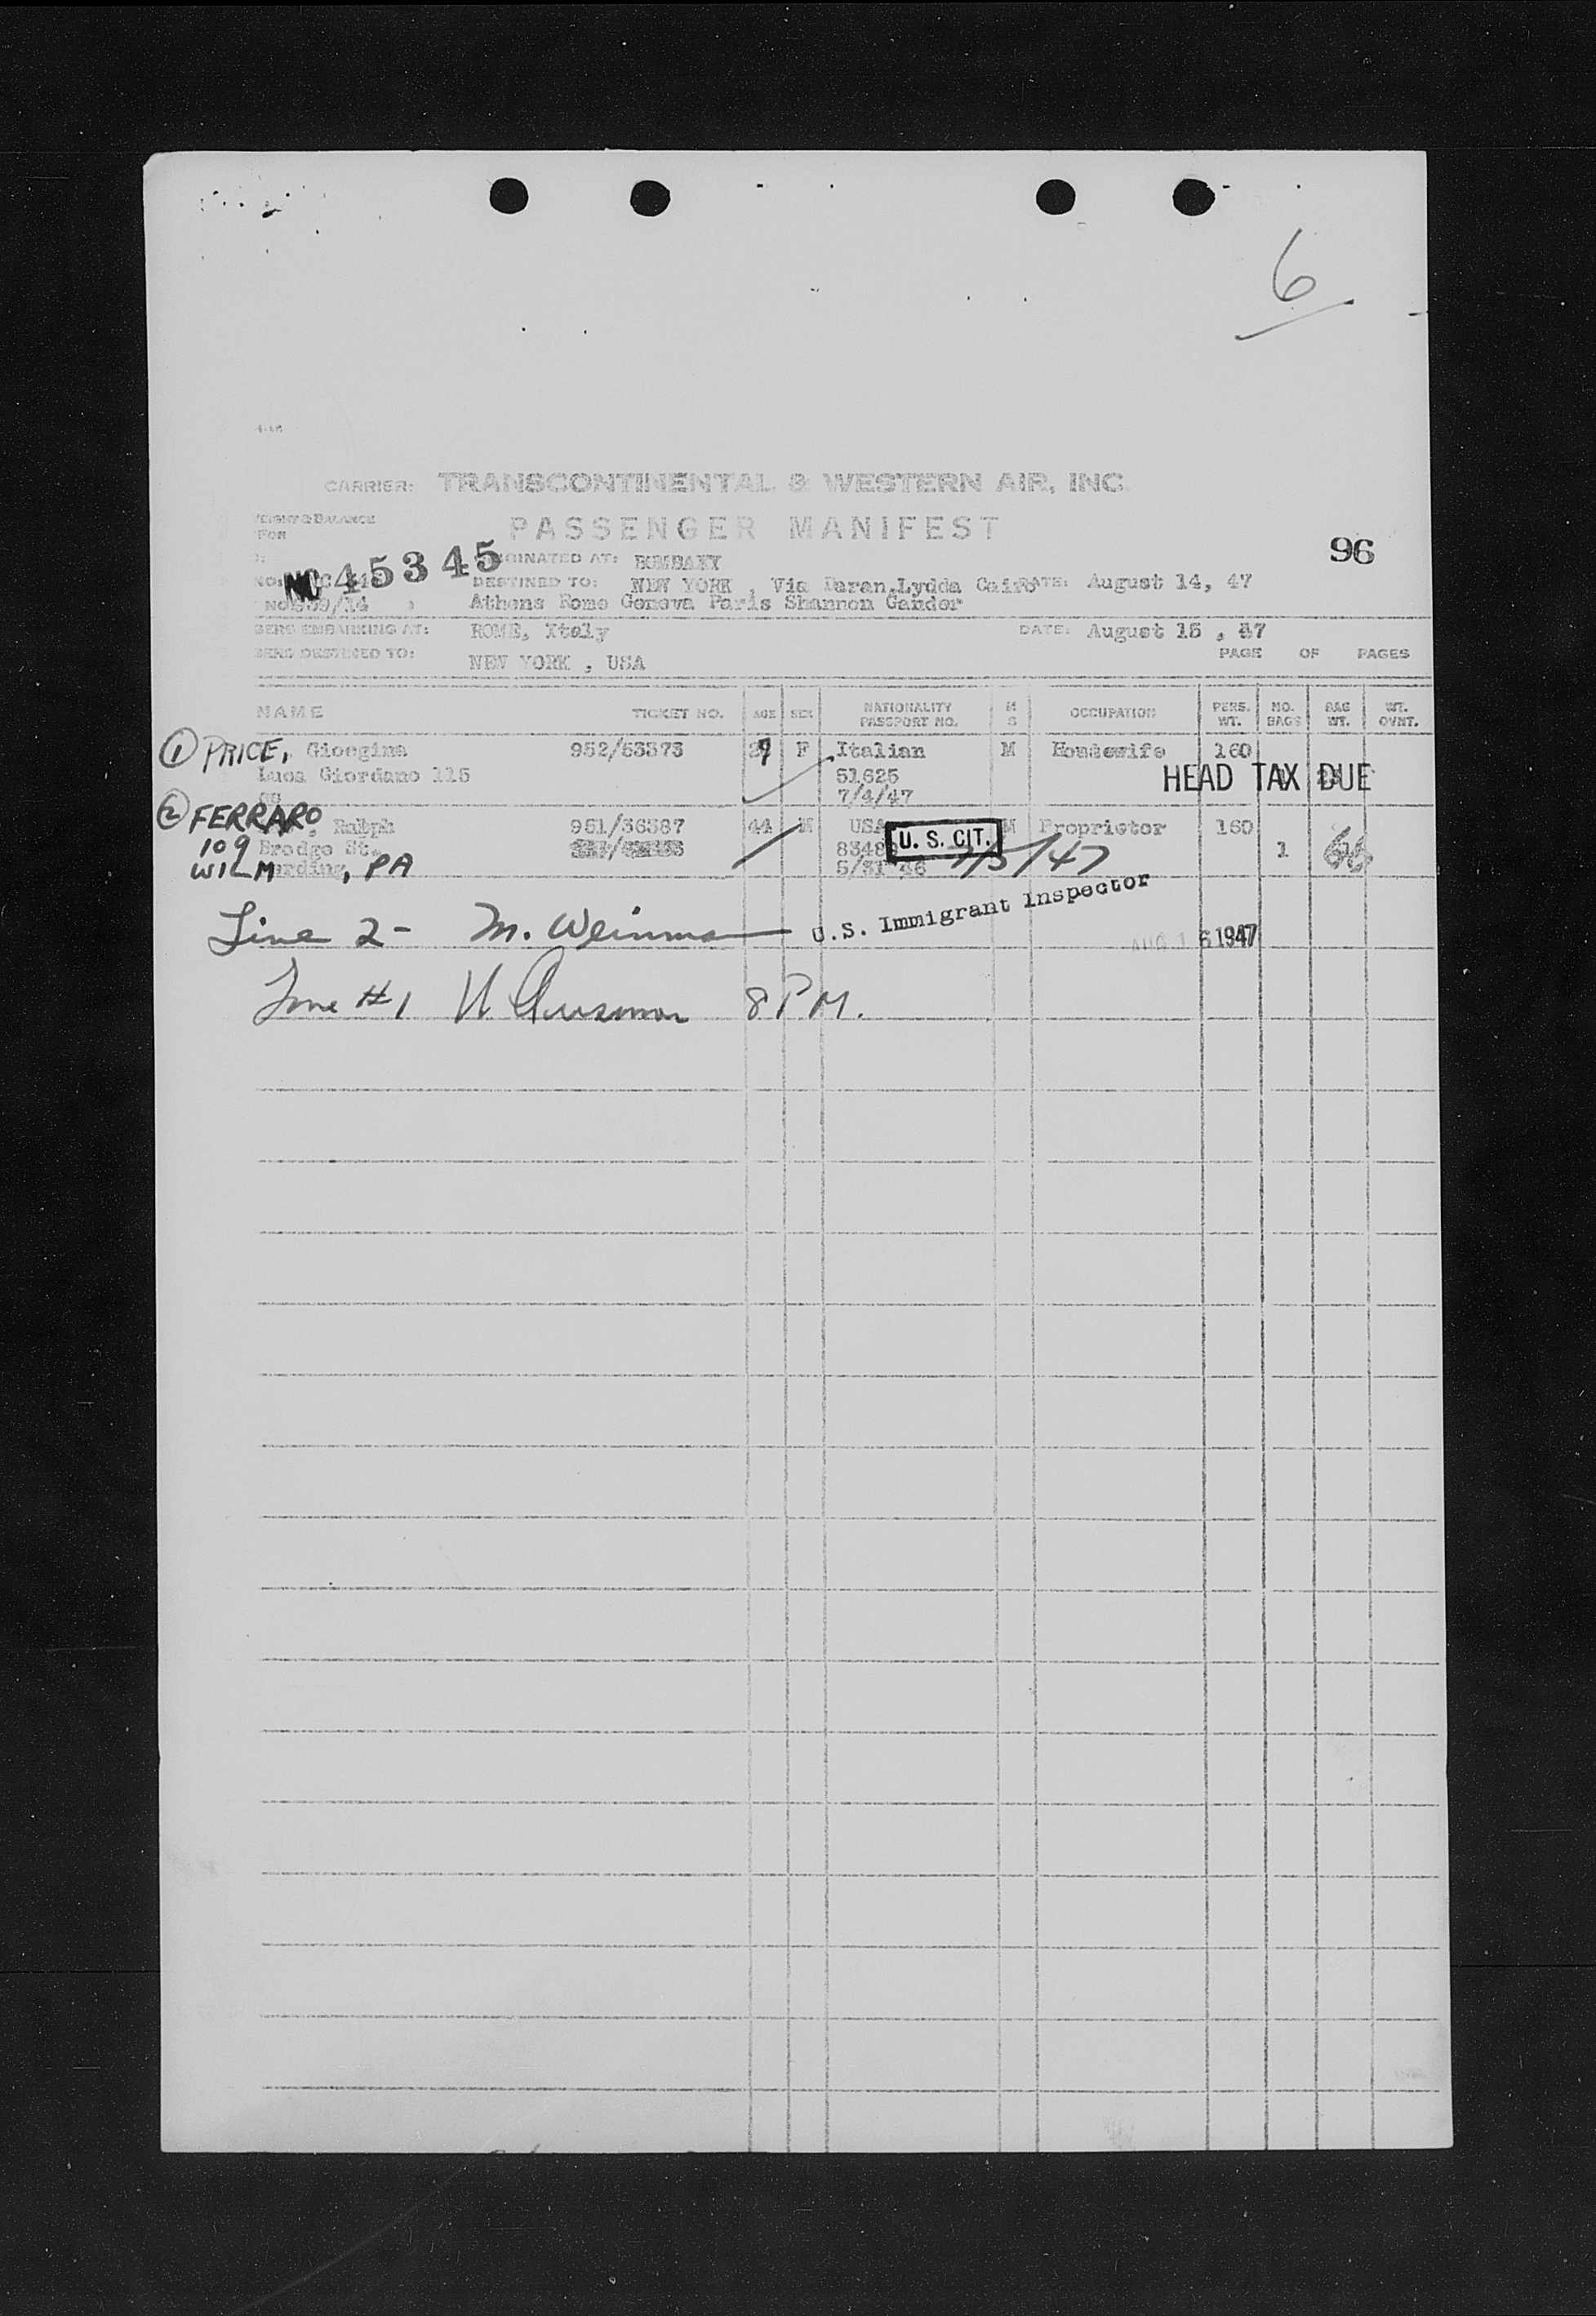 6
CARRIER: TRANSCONTINENTAL & WESTERN AIR, INC.
PASSENGER MANIFEST
96
NC 45345
ORIGINATED AT: BOMBAY
DESTINED TO: NEW YORK , Via Daran,Lydda Cairo DATE: August 14, 47
Athens Rome Geneva Paris Shannon Gander
GERS EMBARKING AT: ROME, Italy DATE: August 15 , 47
GERS DESTINED TO: NEW YORK , USA PAGE OF PAGES
NAME TICKET NO. AGE SEX NATIONALITY PASSPORT NO. M S OCCUPATION PERS. WT. NO. BAGS BAG WT. WT. OVNT.
① PRICE, Gioegina 952/53373 F Italian M Housewife 160
Luca Giordano 115 51625 HEAD TAX DUE
7/4/47
② FERRARO, Ralph 951/36387 44 M USA M Proprietor 160
109 Brodge St. U. S. CIT. 1
WILM, PA 5/31 46 /47
Line 2- M. Weinman U.S. Immigrant Inspector
AUG 16 1947
Line #1 8 PM.